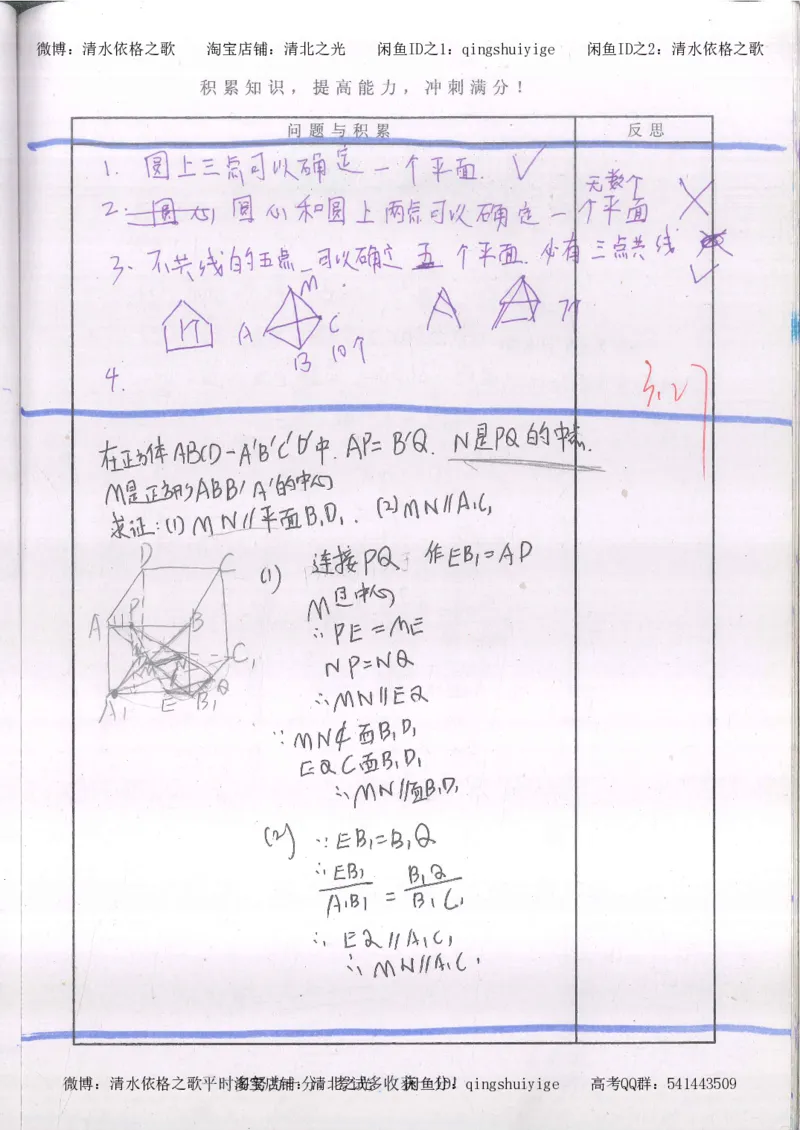 微博：清水依格之歌 淘宝店铺：清北之光 闲鱼ID之1：qingshuiyige 闲鱼ID之2：清水依格之歌
积累知识，提高能力，冲刺满分！
问题与积累 反思
1. 圆上三点可以确定一个平面. ✓
无数个
2. 圆心和圆上两点可以确定一个平面 ×
3. 不共线的五点 可以确定五个平面. 必有三点共线 ✓
M
A C
B 10个 7个
4.
3.27
在正方体ABCD-A'B'C'D'中. AP=B'Q. N是PQ的中点.
M是正方形ABB'A'的中心
求证:(1) MN//平面B₁D₁. (2)MN//A₁C₁
(1) 连接PQ 作EB₁=AP
M是中心
∴PE=ME
NP=NQ
∴MN//EQ
∵MN⊄面B₁D₁
EQ⊂面B₁D₁
∴MN//面B₁D₁
D C
A P B
C₁
A₁ E B₁ Q
(2) ∵EB₁=B₁Q
∴EB₁/A₁B₁ = B₁Q/B₁C₁
∴EQ//A₁C₁
∴MN//A₁C₁
微博：清水依格之歌 闲鱼ID：qingshuiyige 高考QQ群：541443509